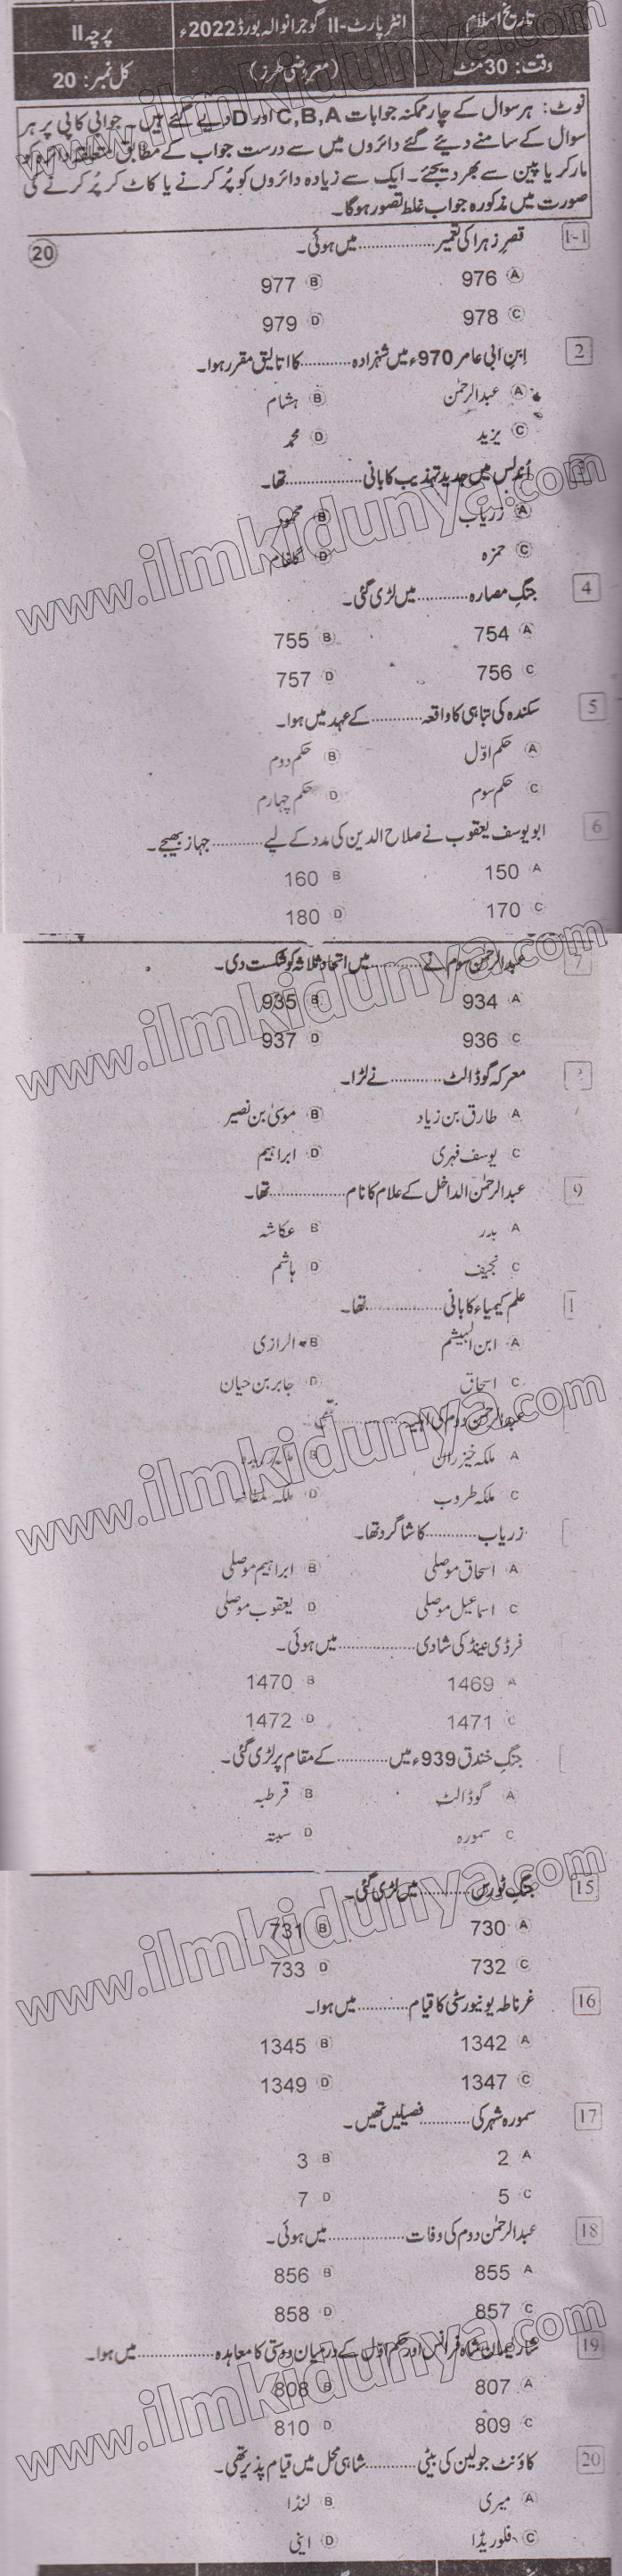 تاریخ اسلام انٹر پارٹ-II گوجرانوالہ بورڈ 2022ء پرچہ II
وقت: 30 منٹ (معروضی طرز) کل نمبر: 20
نوٹ: ہر سوال کے چار ممکنہ جوابات C,B,A اور D دیے گئے ہیں۔ جوابی کاپی پر ہر
سوال کے سامنے دیئے گئے دائروں میں سے درست جواب کے مطابق متعلقہ دائرہ کو
مارکر یا پین سے بھر دیجئے۔ ایک سے زیادہ دائروں کو پُر کرنے یا کاٹ کر پُر کرنے کی
صورت میں مذکورہ جواب غلط تصور ہوگا۔
1-1 قصرِ زہرا کی تعمیر ............ میں ہوئی۔ 20
A 976 B 977
C 978 D 979
2 ابنِ ابی عامر 970ء میں شہزادہ ............ کا اتالیق مقرر ہوا۔
A عبدالرحمٰن B ہشام
C یزید D محمد
اُندلس میں جدید تہذیب کا بانی ............ تھا۔
A زریاب B محمود
C حمزہ D گلفام
4 جنگِ مصارہ ............ میں لڑی گئی۔
A 754 B 755
C 756 D 757
5 سکندہ کی تباہی کا واقعہ ............ کے عہد میں ہوا۔
A حکم اوّل B حکم دوم
C حکم سوم D حکم چہارم
6 ابو یوسف یعقوب نے صلاح الدین کی مدد کے لیے ............ جہاز بھیجے۔
A 150 B 160
C 170 D 180
7 عبدالرحمٰن سوم نے ............ میں اتحادِ ثلاثہ کو شکست دی۔
A 934 B 935
C 936 D 937
معرکہ گوڈالٹ ............ نے لڑا۔
A طارق بن زیاد B موسیٰ بن نصیر
C یوسف فہری D ابراہیم
9 عبدالرحمٰن الداخل کے غلام کا نام ............ تھا۔
A بدر B عکاشہ
C نجیف D ہاشم
علم کیمیاء کا بانی ............ تھا۔
A ابن الہیشم B الرازی
C اسحاق D جابر بن حیان
عبدالرحمٰن دوم کی اہلیہ ............
A ملکہ خیزران B ملکہ
C ملکہ طروب D ملکہ
زریاب ............ کا شاگرد تھا۔
A اسحاق موصلی B ابراہیم موصلی
C اسماعیل موصلی D یعقوب موصلی
فرڈی نینڈ کی شادی ............ میں ہوئی۔
A 1469 B 1470
C 1471 D 1472
جنگِ خندق 939ء میں ............ کے مقام پر لڑی گئی۔
A گوڈالٹ B قرطبہ
C سمورہ D سبتہ
15 جنگِ ٹورس ............ میں لڑی گئی۔
A 730 B 731
C 732 D 733
16 غرناطہ یونیورسٹی کا قیام ............ میں ہوا۔
A 1342 B 1345
C 1347 D 1349
17 سمورہ شہر کی ............ فصیلیں تھیں۔
A 2 B 3
C 5 D 7
18 عبدالرحمٰن دوم کی وفات ............ میں ہوئی۔
A 855 B 856
C 857 D 858
19 شارلیمان شاہ فرانس اور حکم اوّل کے درمیان دوستی کا معاہدہ ............ میں ہوا۔
A 807 B 808
C 809 D 810
20 کاؤنٹ جولین کی بیٹی ............ شاہی محل میں قیام پذیر تھی۔
A میری B لنڈا
C فلوریڈا D اینی
www.ilmkidunya.com